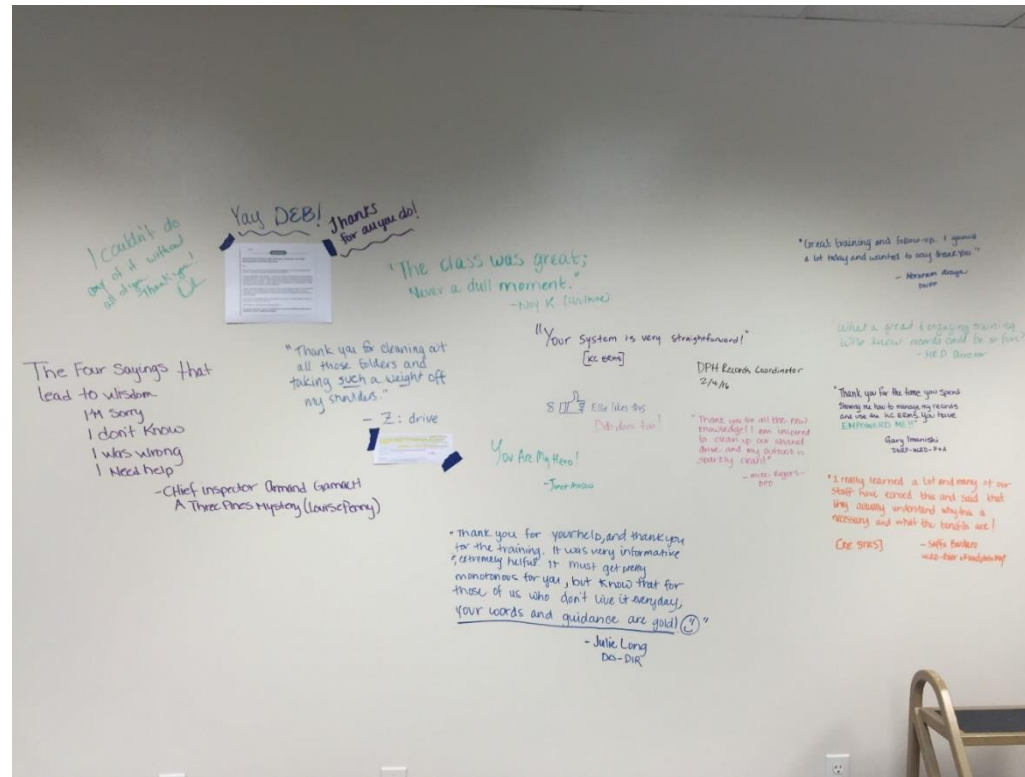 I couldn't do
any of it without
all of you.
Thank you!
Yay DEB!
Thanks
for all you do!
"The class was great;
Never a dull moment."
-Noy K.
"Great training and follow-up. I
a lot today and wanted to say thank you."
The Four Sayings that
lead to wisdom
I'm Sorry
I don't know
I was wrong
I Need help
-Chief Inspector Armand Gamach
A Three Pines Mystery (Louise Penny)
"Thank you for cleaning out
all those folders and
taking such a weight off
my shoulders."
- Z: drive
"Your system is very straightforward!"
[KC ERMS]
DPH Records Coordinator
2/4/16
8
Elle likes this
Deb does too!
You Are My Hero!
"Thank you for all the new
knowledge! I am inspired
to clean up our shared
drive and my outlook is
sparkly clean!"
What a great & engaging training
Who knew records could be so fun!
"Thank you for the time you spend
showing me how to manage my records
and use the KC ERMS. You have
EMPOWERED ME!!"
Gary Imanishi
"I really learned a lot and many of our
staff have echoed this and said that
they actually understand why this is
necessary and what the benefits are!
"Thank you for your help, and thank you
for the training. It was very informative
extremely helpful. It must get pretty
monotonous for you, but know that for
those of us who don't live it everyday,
your words and guidance are gold! "
- Julie Long
DES-DIR